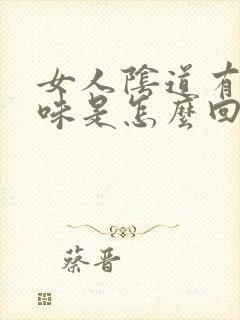 女人陰道有
味是怎麼回
蔡晋